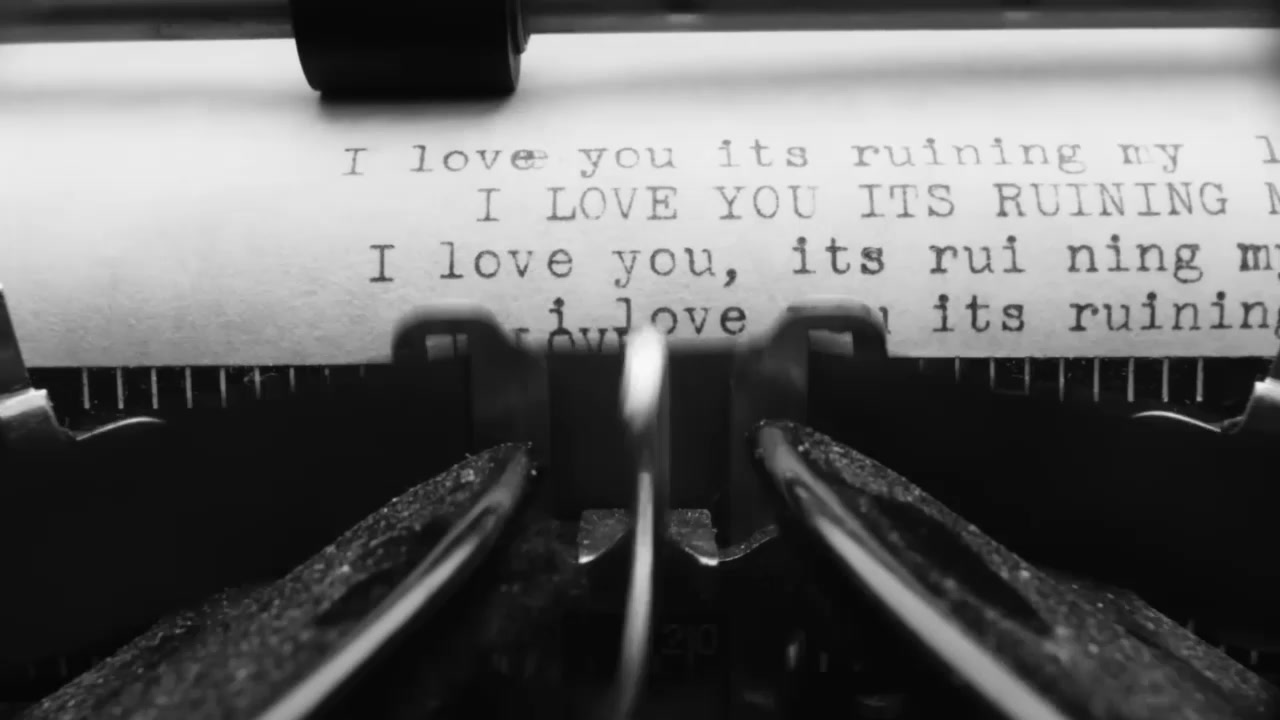 I love you its ruining my l
I LOVE YOU ITS RUINING M
I love you, its rui ning my
i love u its ruining
20